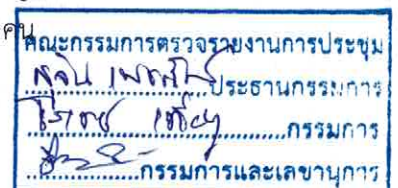 คน
คณะกรรมการตรวจรายงานการประชุม
ประธานกรรมการ
กรรมการ
กรรมการและเลขานุการ